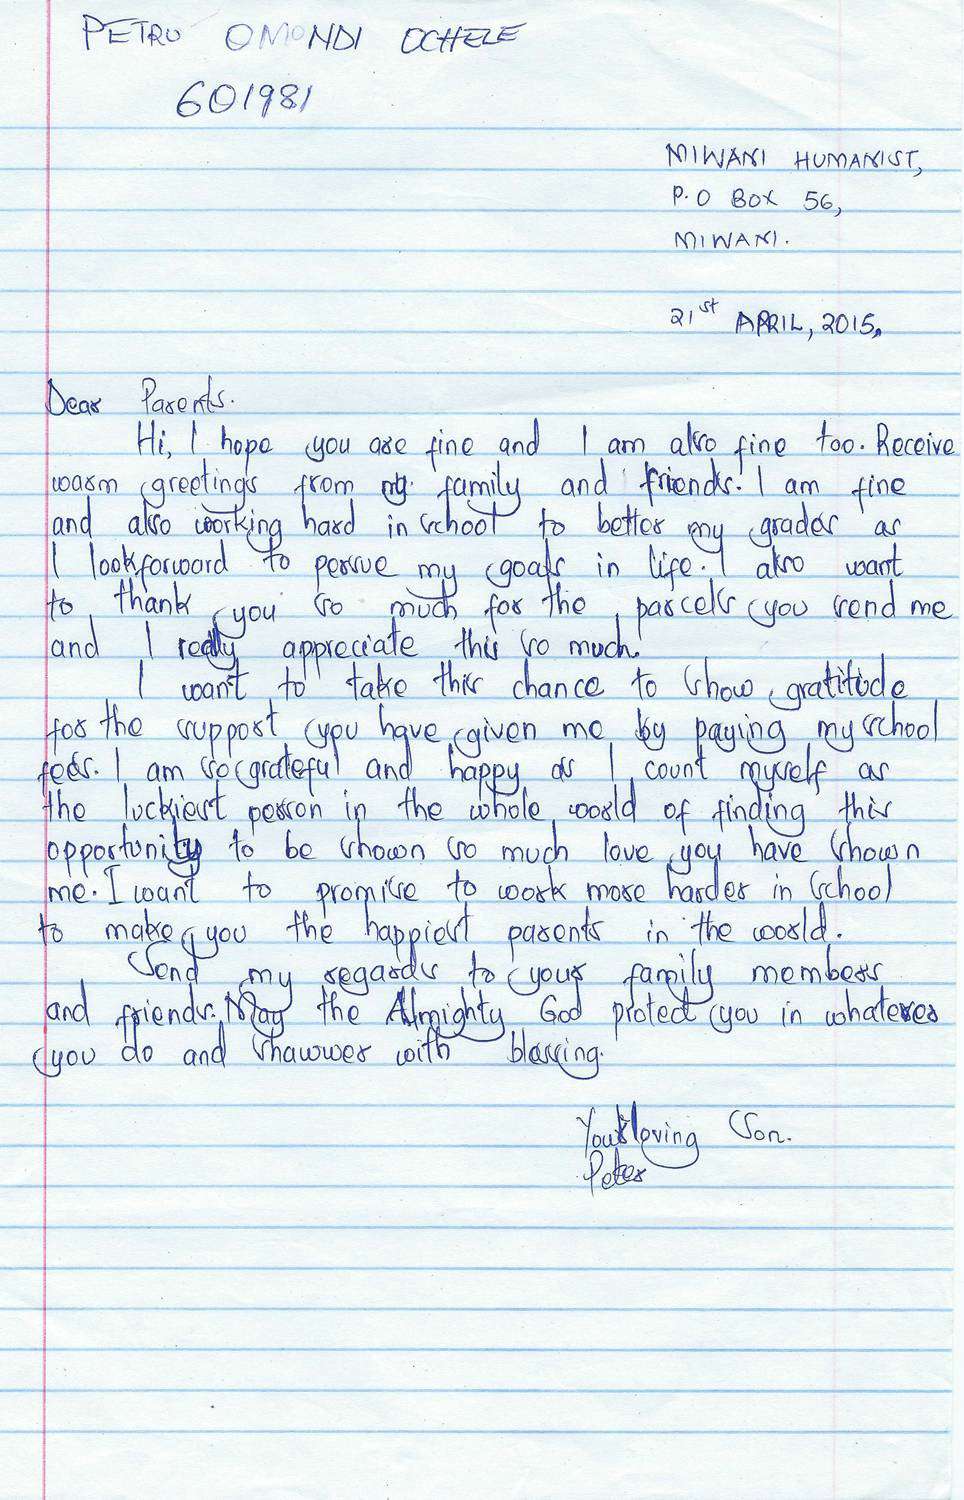 PETRO OMONDI OCHELE
601981
MIWANI HUMANIST,
P.O BOX 56,
MIWANI.
21st APRIL, 2015.
Dear Parents.
Hi, I hope you are fine and I am also fine too. Receive
warm greetings from my family and friends. I am fine
and also working hard in school to better my grades as
I lookforward to persue my goals in life. I also want
to thank you so much for the parcels you send me
and I really appreciate this so much.
I want to take this chance to show gratitude
for the support you have given me by paying my school
fees. I am so grateful and happy as I count myself as
the luckiest person in the whole world of finding this
opportunity to be shown so much love you have shown
me. I want to promise to work more harder in school
to make you the happiest parents in the world.
Send my regards to your family members
and friends. May the Almighty God protect you in whatever
you do and shawwer with blessing.
Your loving Son.
Peter